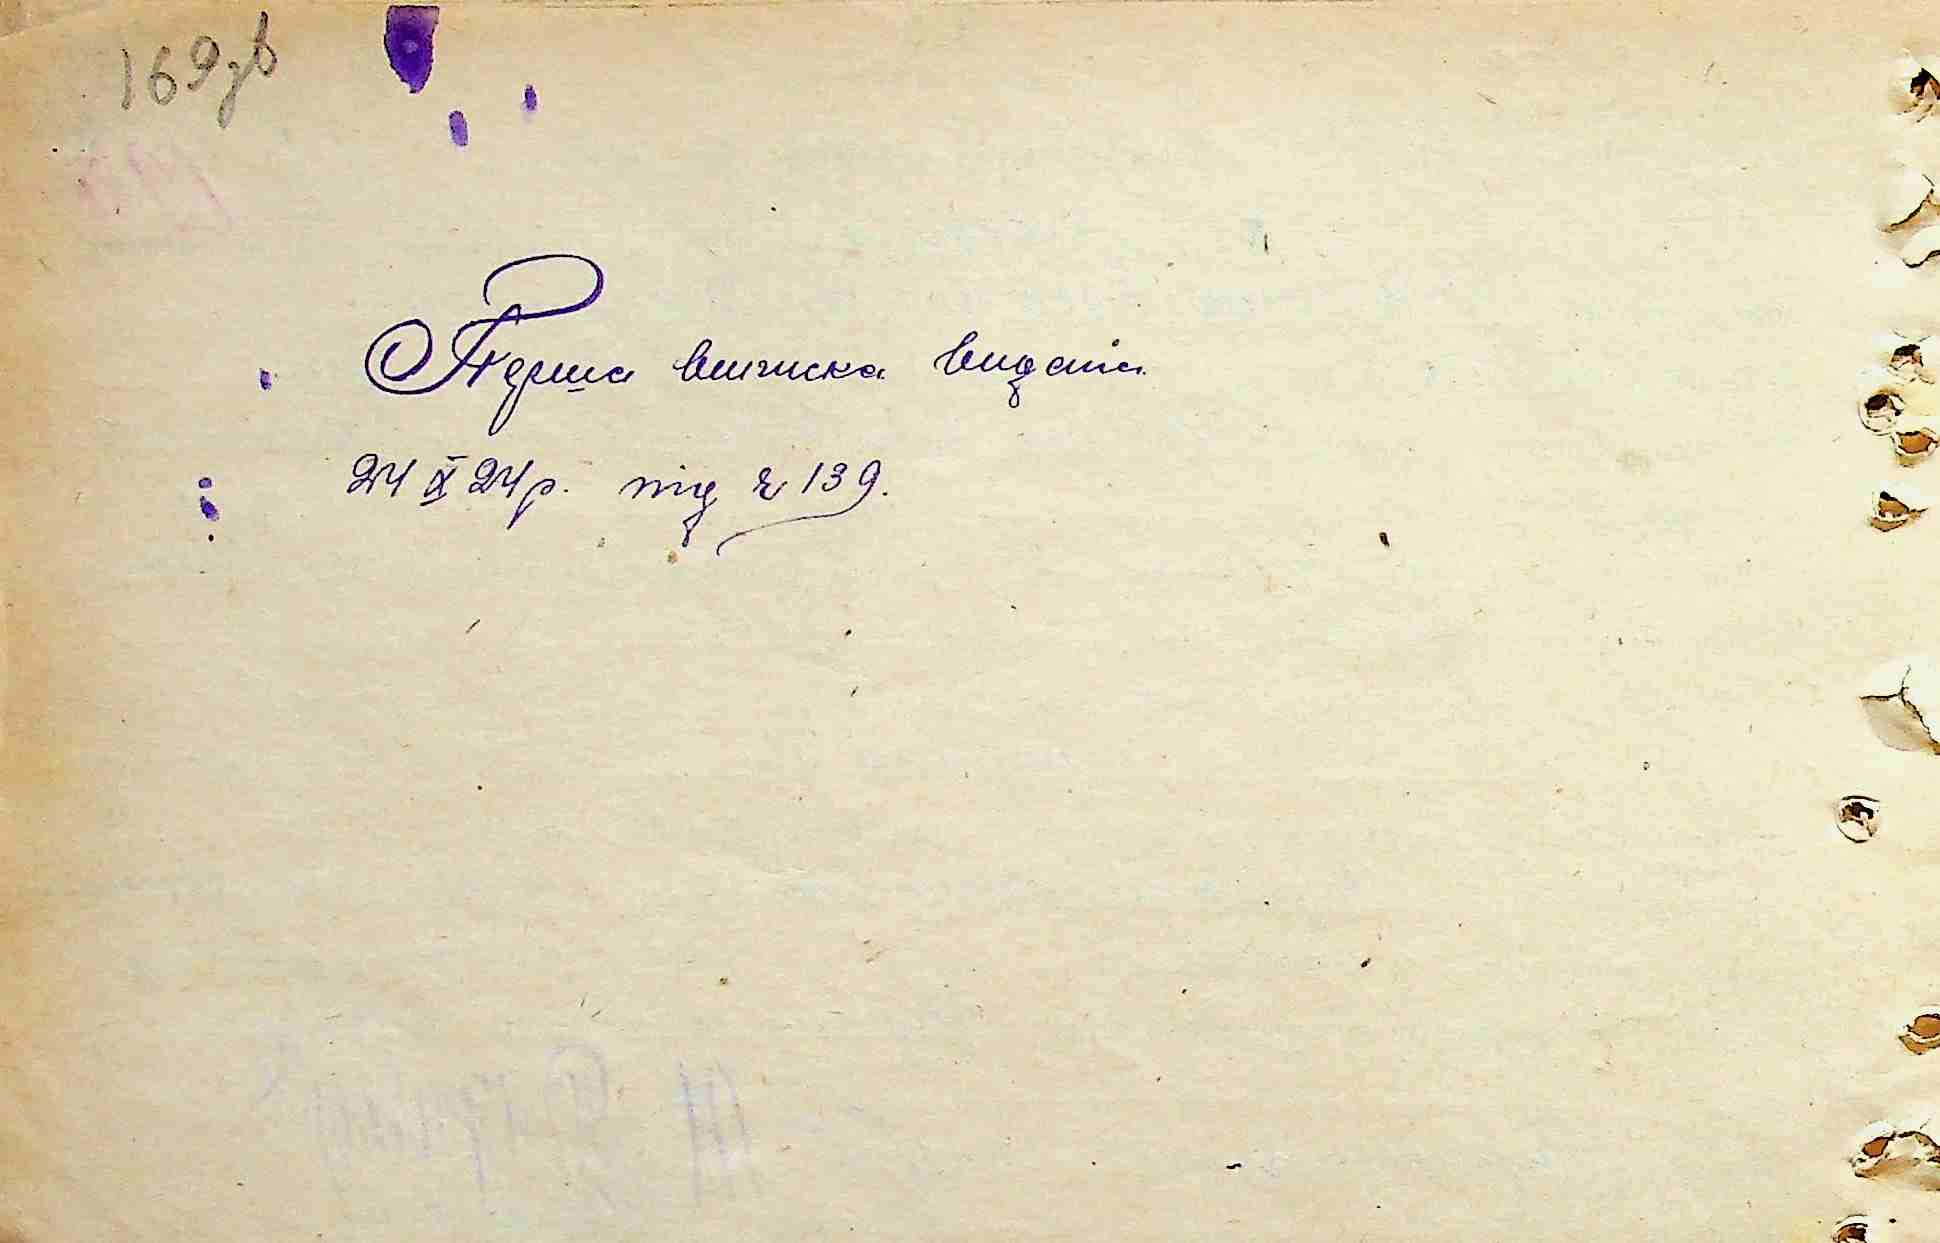 169зв
Перша виписка видана
24 X 24р. під ч 139.